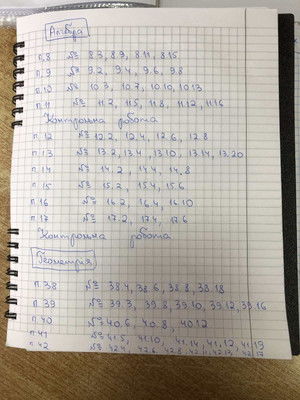 Алгебра
п.8 № 8.3, 8.9, 8.11, 8.15
п.9 № 9.2, 9.4, 9.6, 9.8
п.10 № 10.3, 10.7, 10.10, 10.13
п.11 № 11.2, 11.5, 11.8, 11.12, 11.16
Контрольна робота
п.12 № 12.2, 12.4, 12.6, 12.8
п.13 № 13.2, 13.4, 13.10, 13.14, 13.20
п.14 № 14.2, 14.4, 14.8
п.15 № 15.2, 15.4, 15.6
п.16 № 16.2, 16.4, 16.10
п.17 № 17.2, 17.4, 17.6
Контрольна робота
Геометрия
п.38 № 38.4, 38.6, 38.8, 38.18
п.39 № 39.3, 39.8, 39.10, 39.12, 39.16
п.40 № 40.6, 40.8, 40.12
п.41 № 41.5, 41.10, 41.14, 41.12, 41.19
п.42 № 42.4, 42.6, 42.8, 42.11, 42.13, 42.17